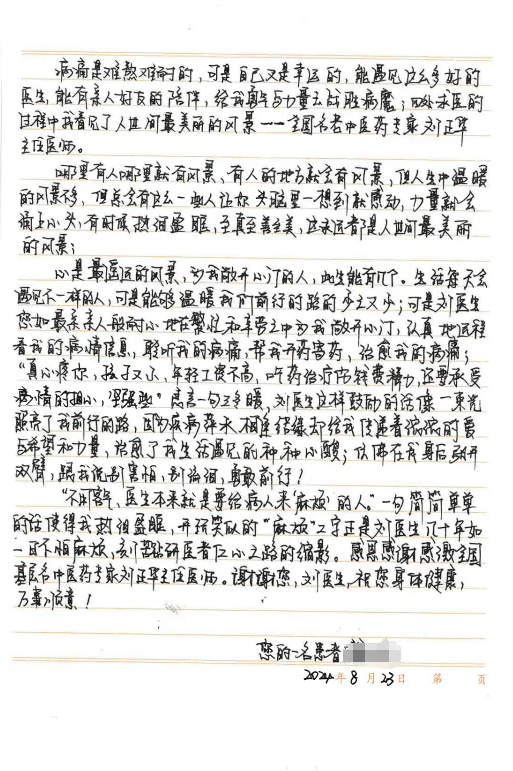 病痛是难熬难耐的，可是自己又是幸运的，能遇见这么多好的
医生，能有亲人好友的陪伴，给我勇气与力量去战胜病魔；四处求医的
过程中我看见了人世间最美丽的风景——全国名老中医药专家刘正华
主任医师。
哪里有人哪里就有风景、有人的地方就会有风景，但人生中温暖
的风景不多，但总会有这么一些人让你头脑里一想到就感动，力量就会
涌上心头，有时候热泪盈眶，至真至善至美，这永远都是人世间最美丽
的风景；
心是最遥远的风景，为我敞开心门的人，此生能有几个。生活每天会
遇见不一样的人，可是能够温暖我们前行的路的少之又少；可是刘医生
您如最亲亲人一般耐心地在繁忙和辛劳中为我敞开心门，认真地远程
看我的病情信息，聆听我的病痛，帮我开药寄药，治愈我的病痛；
“真心疼你，孩子又小、年轻工资不高，吃药治疗花钱费精力，还要承受
病情的担心，坚强些”良言一句三冬暖，刘医生这样鼓励的话像一束光
照亮了我前行的路，因为疾病萍水相逢结缘却给我传递着浓浓的爱
与希望和力量，治愈了我生活遇见的种种心酸；仿佛在我身后张开
双臂，跟我说别害怕，别彷徨，勇敢前行！
“不用客气，医生本来就是要给病人来‘麻烦’的人。”一句简简单单
的话使得我热泪盈眶，开玩笑似的“麻烦”二字正是刘医生几十年如
一日不怕麻烦，刻苦钻研医者仁心之路的缩影。感恩感谢感激全国
基层名中医药专家刘正华主任医师。谢谢您，刘医生，祝您身体健康，
万事顺意！
您的一名患者
2024年8月23日 第 页